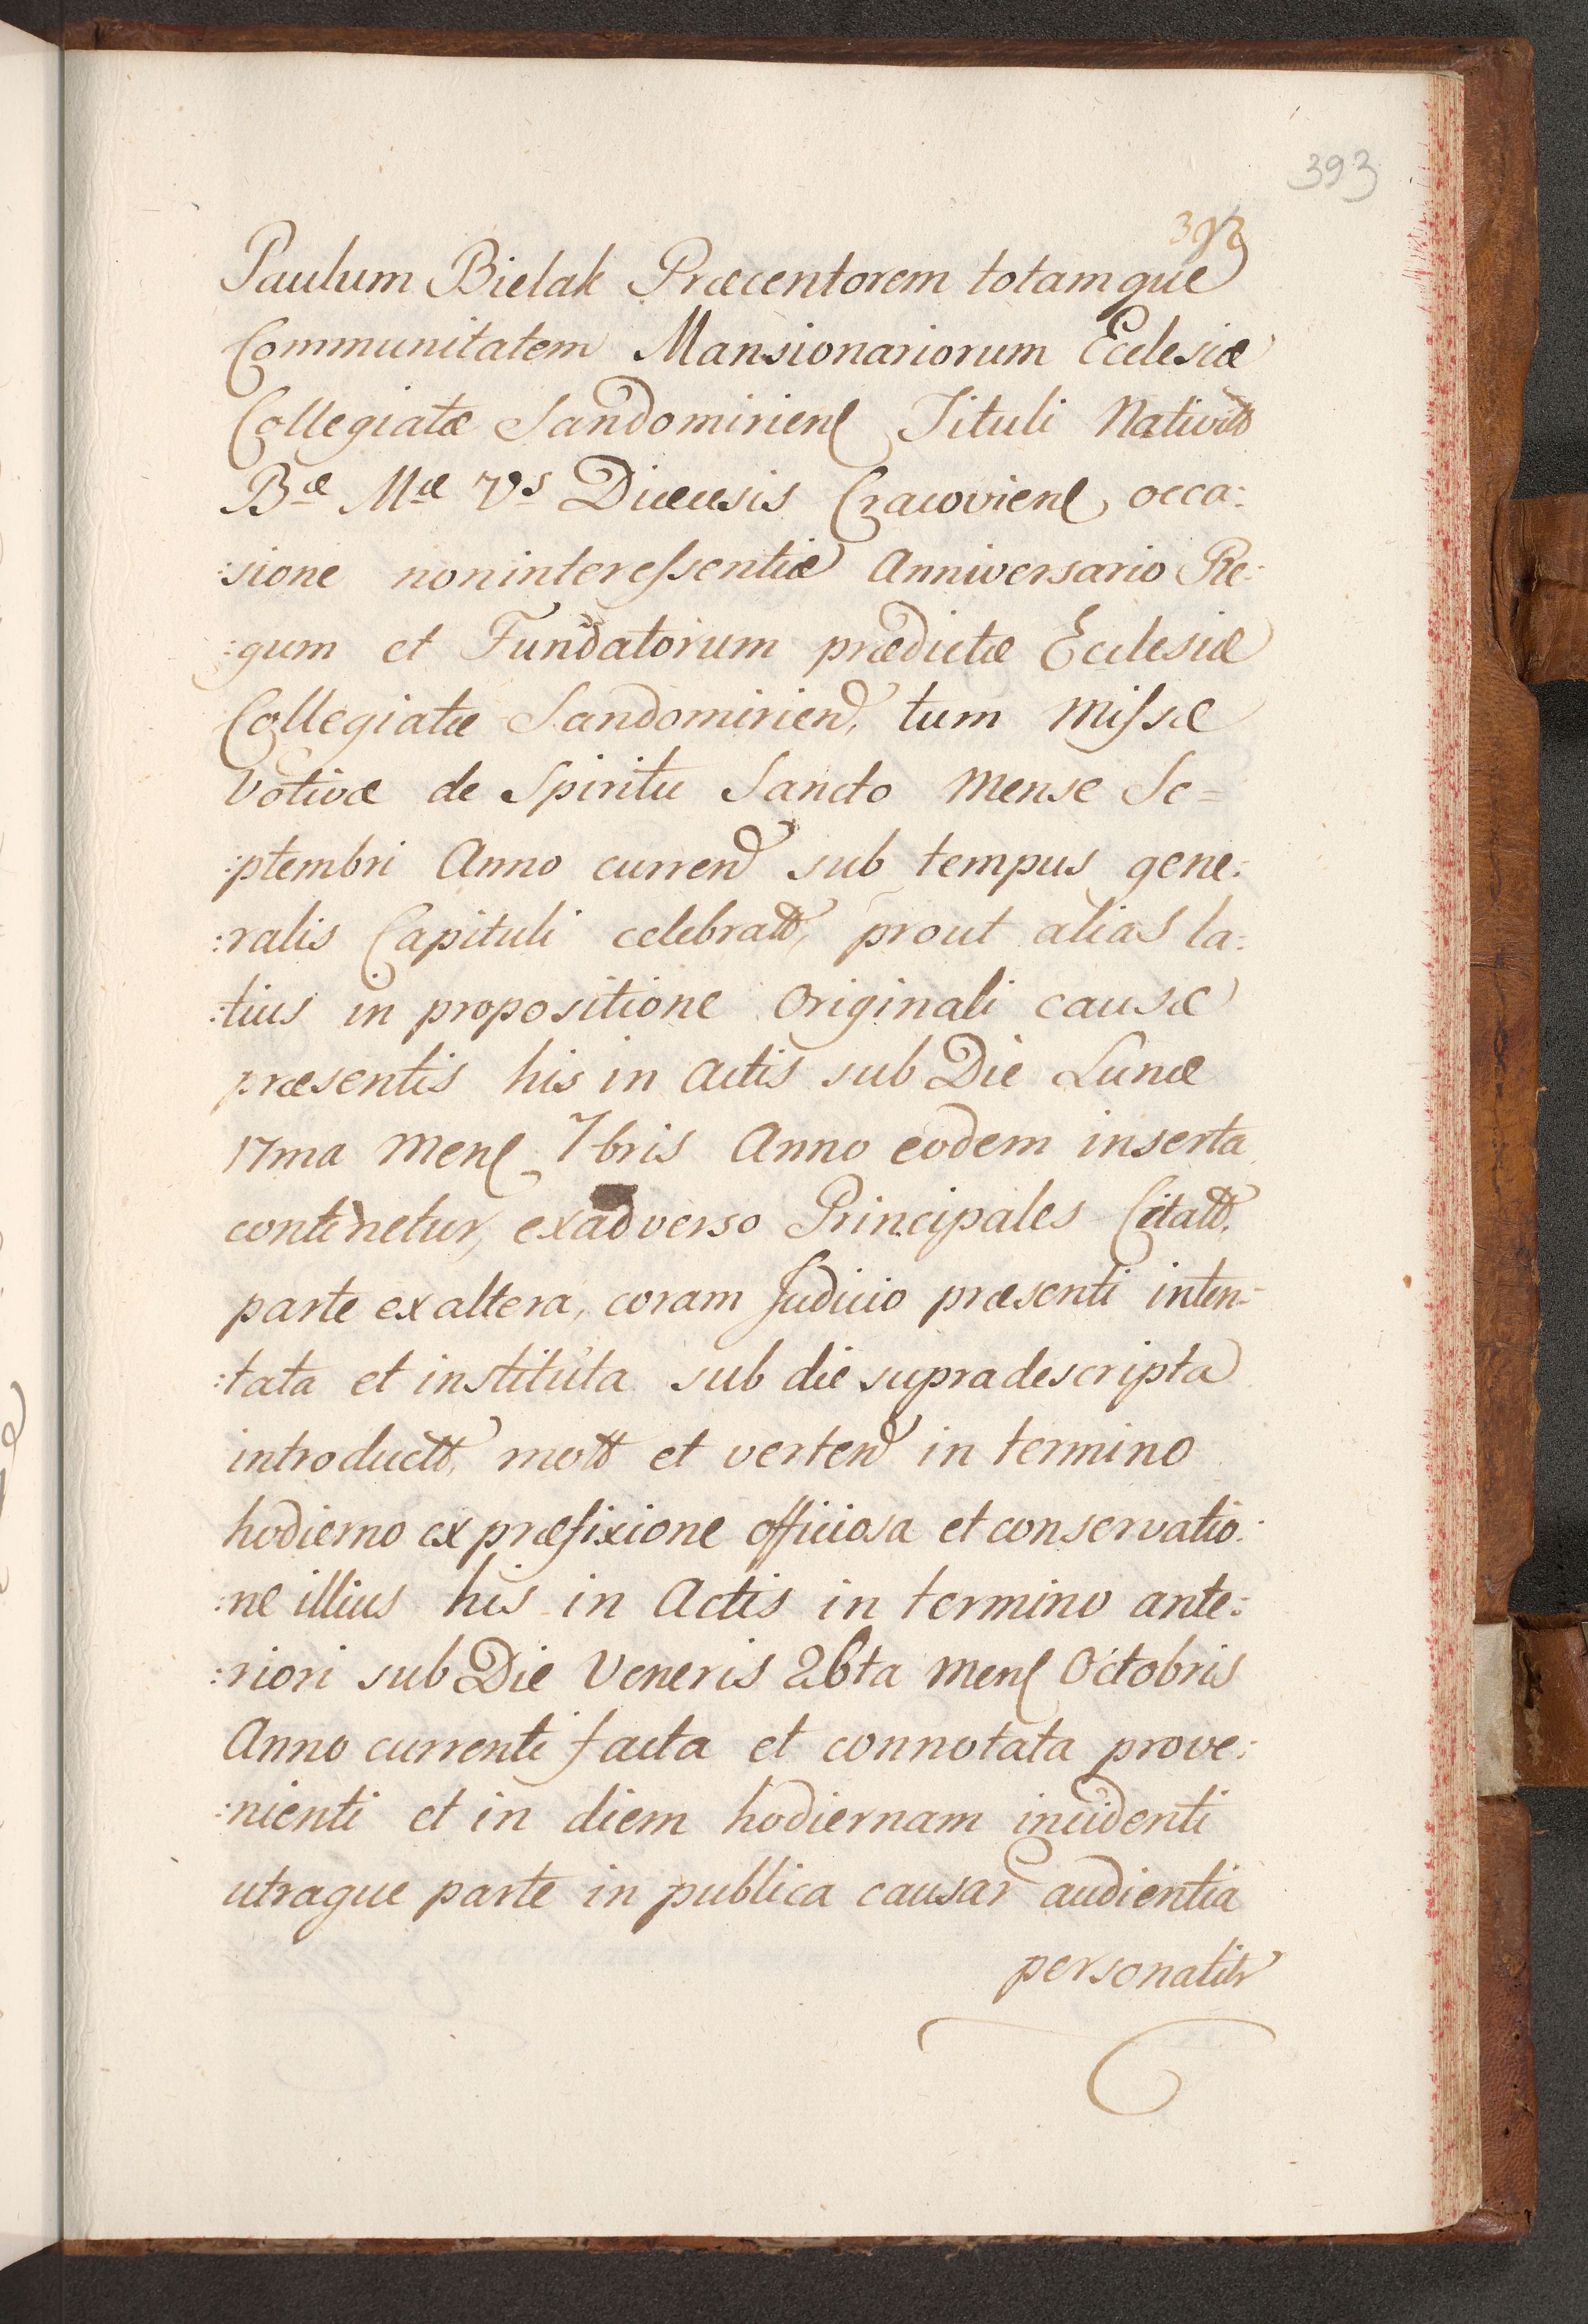 393
393
Paulum Bielak Præcentorem totamque
Communitatem Mansionariorum Ecclesiæ
Collegiatæ Sandomirien Tituli Nativitt
Bæ Mæ Vs Diæcesis Cracovien, occa:
:sione noninteressentiæ Anniversario Re:
:gum et Fundatorum prædictæ Ecclesiæ
Collegiatæ Sandomirien, tum Missæ
Votivæ de Spiritu Sancto Mense Se=
:ptembri Anno curren sub tempus gene:
:ralis Capituli celebratt, prout alias la:
:tius in propositione Originali causæ
præsentis his in Actis sub Die Lunæ
17ma Mens 7bris Anno eodem inserta
continetur, exadverso Principales Citatt,
parte exaltera, coram Judicio præsenti inten:
:tata et instituta sub die supradescripta
introductt, mott et verten in termino
hodierno ex præfixione officiosa et conservatio:
:ne illius his in Actis in termino ante:
:riori sub Die Veneris 26ta Mens Octobris
Anno currenti facta et connotata prove:
:nienti et in diem hodiernam incidenti
utraque parte in publica causar audientia
personalitr